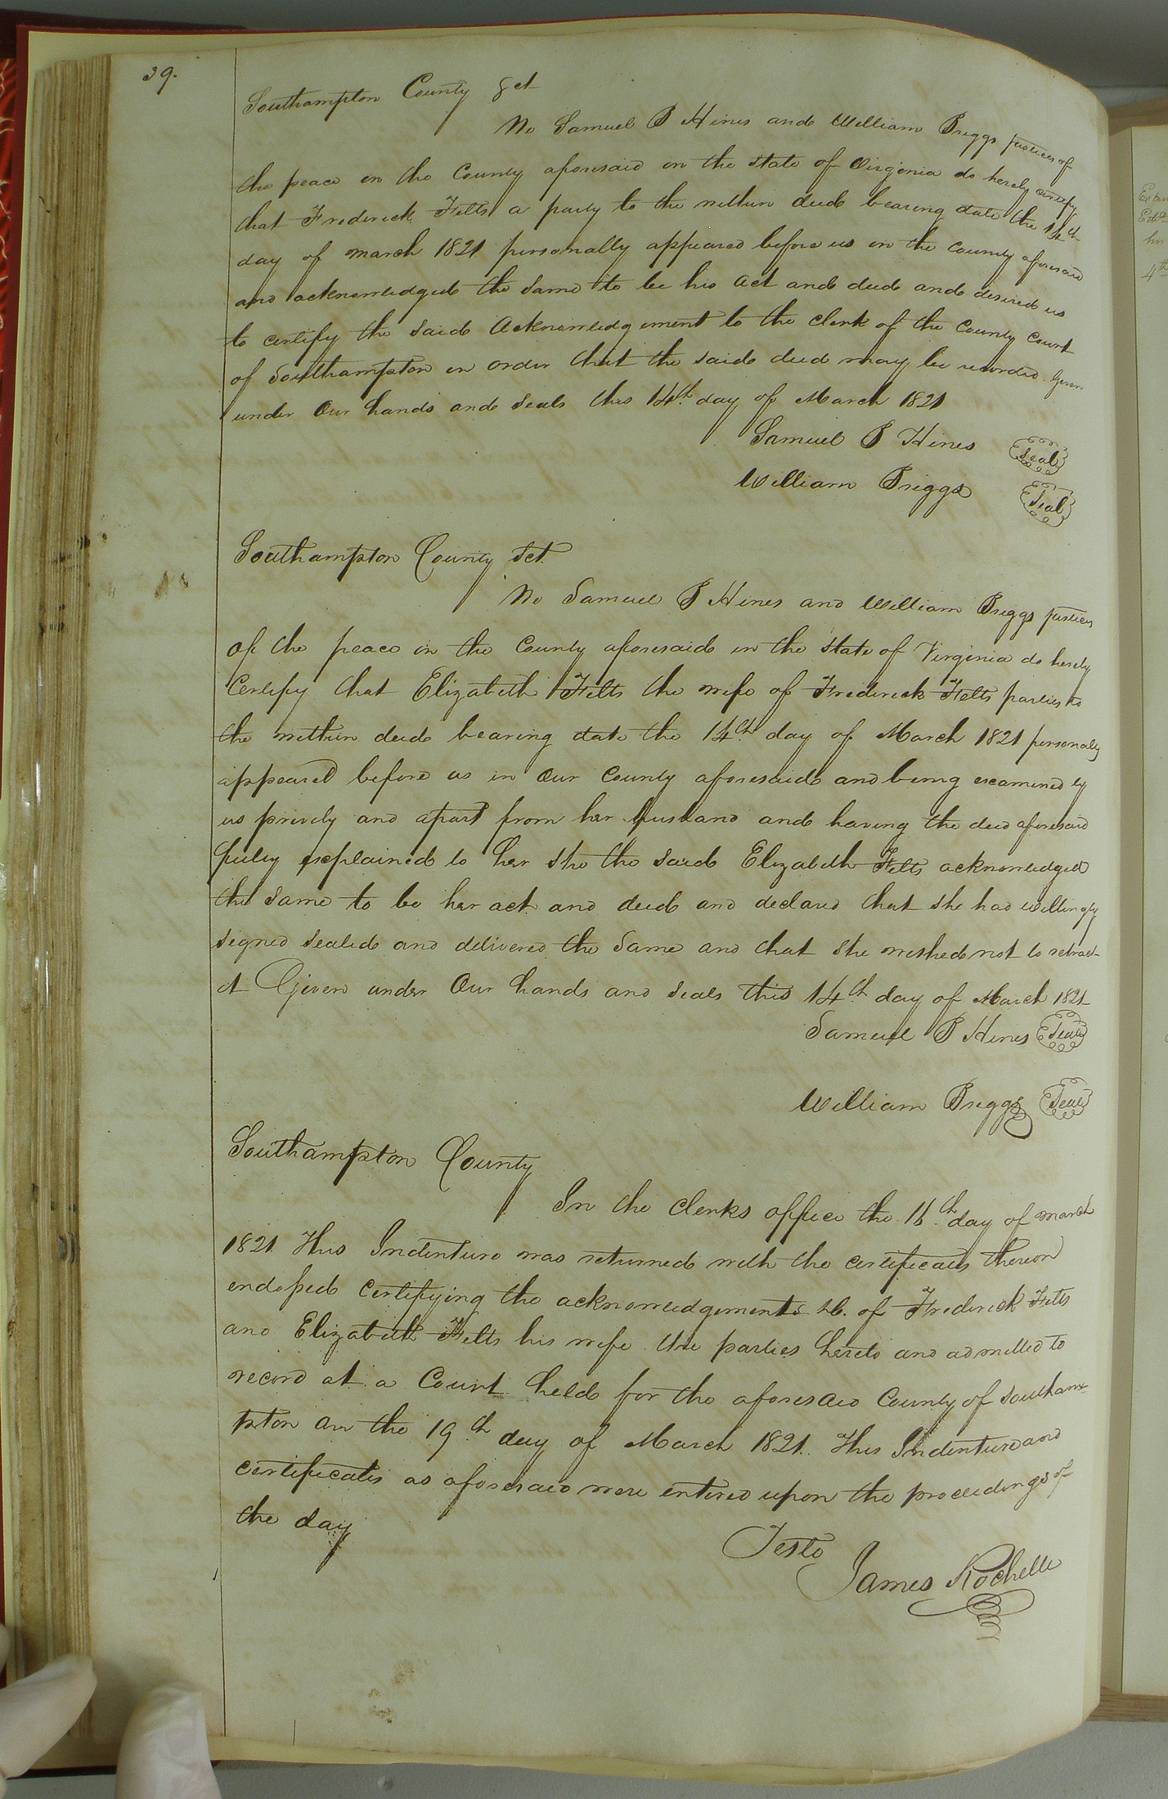 39.
Southampton County Sct
We Samuel B Hines and William Briggs justices of
the peace in the County aforesaid in the state of Virginia do hereby certify
that Frederick Felts a party to the within deed bearing date the 14th
day of march 1821 personally appeared before us in the County aforesaid
and acknowledged the same to be his act and deed and desired us
to certify the said Acknowledgement to the clerk of the County Court
of Southampton in order that the said deed may be recorded. Given
under Our hands and seals this 14th day of March 1821
Samuel B Hines Seal
William Briggs Seal
Southampton County Sct.
We Samuel B Hines and William Briggs justices
of the peace in the County aforesaid in the state of Virginia do hereby
Certify that Elizabeth Felts the wife of Frederick Felts parties to
the within deed bearing date the 14th day of March 1821 personally
appeared before us in Our County aforesaid and being examined by
us privily and apart from her husband and having the deed aforesaid
fully explained to her she the said Elizabeth Felts acknowledged
the same to be her act and deed and declared that she had willingly
signed sealed and delivered the same and that she wished not to retract
it Given under Our hands and seals this 14th day of March 1821
Samuel B Hines Seal
William Briggs Seal
Southampton County
In the Clerks office the 16th day of march
1821 This Indenture was returned with the certificates thereon
endorsed certifying the acknowledgements &c. of Frederick Felts
and Elizabeth Felts his wife the parties hereto and admitted to
record at a Court held for the aforesaid County of Southam-
pton on the 19th day of March 1821. This Indenture and
certificates as aforesaid were entered upon the proceedings of
the day
Teste
James Rochelle